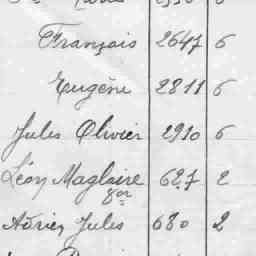 Français 2647 6
Eugène 2811 6
Jules Olivier 2910 6
Léon Magloire 627 2
Adrien Jules 680 2